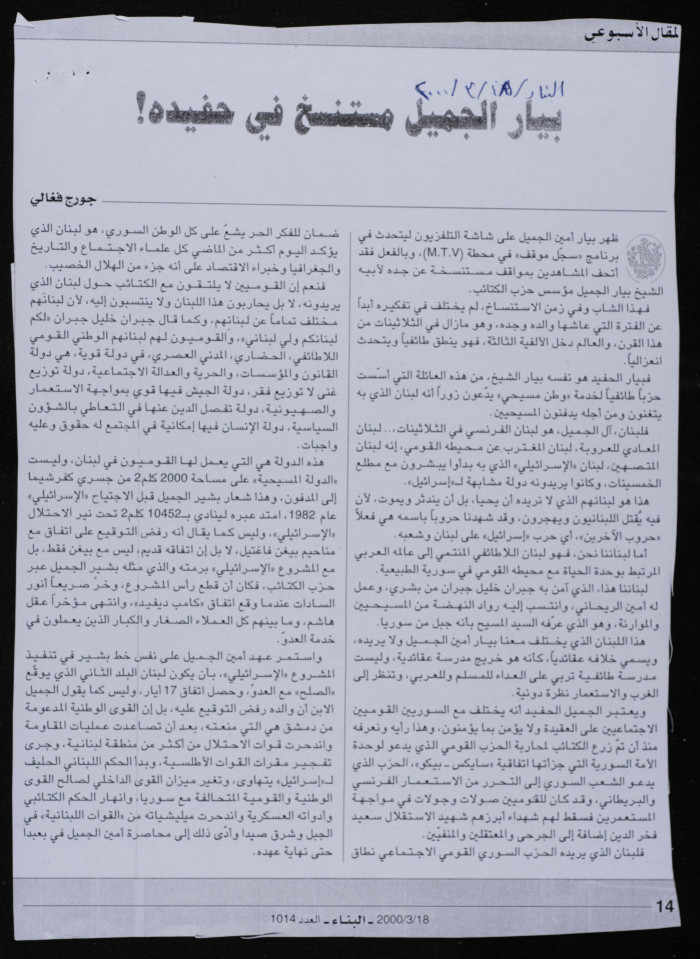 المقال الأسبوعي
البناء/١٨/٣/٢٠٠٠
بيار الجميل مستنسخ في حفيده!
جورج فغالي
ظهر بيار أمين الجميل على شاشة التلفزيون ليتحدث في
برنامج «سجّل موقف» في محطة (M.T.V)، وبالفعل فقد
أتحف المشاهدين بمواقف مستنسخة عن جده لأبيه
الشيخ بيار الجميل مؤسس حزب الكتائب.
فهذا الشاب وفي زمن الاستنساخ، لم يختلف في تفكيره أبداً
عن الفترة التي عاشها والده وجده، وهو مازال في الثلاثينات من
هذا القرن، والعالم دخل الألفية الثالثة، فهو ينطق طائفياً ويتحدث
انعزالياً.
فبيار الحفيد هو نفسه بيار الشيخ، من هذه العائلة التي أسّست
حزباً طائفياً لخدمة «وطن مسيحي» يدّعون زوراً أنه لبنان الذي به
يتغنون ومن أجله يدفنون المسيحيين.
فلبنان، آل الجميل، هو لبنان الفرنسي في الثلاثينات... لبنان
المعادي للعروبة، لبنان المغترب عن محيطه القومي، إنه لبنان
المتصهين، لبنان «الإسرائيلي» الذي به بدأوا يبشرون مع مطلع
الخمسينات، وكانوا يريدونه دولة مشابهة لـ«إسرائيل».
هذا هو لبنانهم الذي لا نريده أن يحيا، بل أن يندثر ويموت، لأن
فيه يُقتل اللبنانيون ويهجرون، وقد شهدنا حروباً باسمه هي فعلاً
«حروب الآخرين»، أي حرب «إسرائيل» على لبنان وشعبه.
أما لبناننا نحن، فهو لبنان اللاطائفي المنتمي إلى عالمه العربي
المرتبط بوحدة الحياة مع محيطه القومي في سورية الطبيعية.
لبناننا هذا، الذي آمن به جبران خليل جبران من بشري، وعمل
له أمين الريحاني، وانتسب إليه رواد النهضة من المسيحيين
والموارنة، وهو الذي عرّفه السيد المسيح بأنه جبل من سوريا.
هذا اللبنان الذي يختلف معنا بيار أمين الجميل ولا يريده،
ويسمي خلافه عقائدياً، كأنه هو خريج مدرسة عقائدية، وليست
مدرسة طائفية تربي على العداء للمسلم وللعربي، وتنظر إلى
الغرب والاستعمار نظرة دونية.
ويعتبر الجميل الحفيد أنه يختلف مع السوريين القوميين
الاجتماعيين على العقيدة ولا يؤمن بما يؤمنون، وهذا رأيه ونعرفه
منذ أن تمّ زرع الكتائب لمحاربة الحزب القومي الذي يدعو لوحدة
الأمة السورية التي جزأتها اتفاقية «سايكس - بيكو»، الحزب الذي
يدعو الشعب السوري إلى التحرر من الاستعمار الفرنسي
والبريطاني، وقد كان للقوميين صولات وجولات في مواجهة
المستعمرين فسقط لهم شهداء أبرزهم شهيد الاستقلال سعيد
فخر الدين إضافة إلى الجرحى والمعتقلين والمنفيّين.
فلبنان الذي يريده الحزب السوري القومي الاجتماعي نطاق
ضمان للفكر الحر يشعّ على كل الوطن السوري، هو لبنان الذي
يؤكد اليوم أكثر من الماضي كل علماء الاجتماع والتاريخ
والجغرافيا وخبراء الاقتصاد على أنه جزء من الهلال الخصيب.
فنعم إن القوميين لا يلتقون مع الكتائب حول لبنان الذي
يريدونه، لا بل يحاربون هذا اللبنان ولا ينتسبون إليه، لأن لبنانهم
مختلف تماماً عن لبنانهم، وكما قال جبران خليل جبران «لكم
لبنانكم ولي لبناني»، والقوميون لهم لبنانهم الوطني القومي
اللاطائفي، الحضاري، المدني العصري، في دولة قوية، هي دولة
القانون والمؤسسات، والحرية والعدالة الاجتماعية، دولة توزيع
غنى لا توزيع فقر، دولة الجيش فيها قوي بمواجهة الاستعمار
والصهيونية، دولة تفصل الدين عنها في التعاطي بالشؤون
السياسية، دولة الإنسان فيها إمكانية في المجتمع له حقوق وعليه
واجبات.
هذه الدولة هي التي يعمل لها القوميون في لبنان، وليست
«الدولة المسيحية» على مساحة 2000 كلم2 من جسري كفرشيما
إلى المدفون، وهذا شعار بشير الجميل قبل الاجتياح «الإسرائيلي»
عام 1982، امتد عبره لينادي بـ10452 كلم2 تحت نير الاحتلال
«الإسرائيلي»، وليس كما يقال أنه رفض التوقيع على اتفاق مع
مناحيم بيغن فاغتيل، لا بل إن اتفاقه قديم، ليس مع بيغن فقط، بل
مع المشروع «الإسرائيلي» برمته والذي مثله بشير الجميل عبر
حزب الكتائب، فكان أن قطع رأس المشروع، وخرّ صريعاً أنور
السادات عندما وقع اتفاق «كامب ديفيد»، وانتهى مؤخراً عقل
هاشم، وما بينهم كل العملاء الصغار والكبار الذين يعملون في
خدمة العدوّ.
واستمر عهد أمين الجميل على نفس خط بشير في تنفيذ
المشروع «الإسرائيلي»، بأن يكون لبنان البلد الثاني الذي يوقّع
«الصلح» مع العدوّ، وحصل اتفاق 17 أيار، وليس كما يقول الجميل
الابن أن والده رفض التوقيع عليه، بل إن القوى الوطنية المدعومة
من دمشق هي التي منعته، بعد أن تصاعدت عمليات المقاومة
واندحرت قوات الاحتلال من أكثر من منطقة لبنانية، وجرى
تفجير مقرات القوات الأطلسية، وبدأ الحكم اللبناني الحليف
لـ«إسرائيل» يتهاوى، وتغير ميزان القوى الداخلي لصالح القوى
الوطنية والقومية المتحالفة مع سوريا، وانهار الحكم الكتائبي
وأدواته العسكرية واندحرت ميليشياته من «القوات اللبنانية» في
الجبل وشرق صيدا وأدّى ذلك إلى محاصرة أمين الجميل في بعبدا
حتى نهاية عهده.
14
2000/3/18 ـ البناء ـ العدد 1014